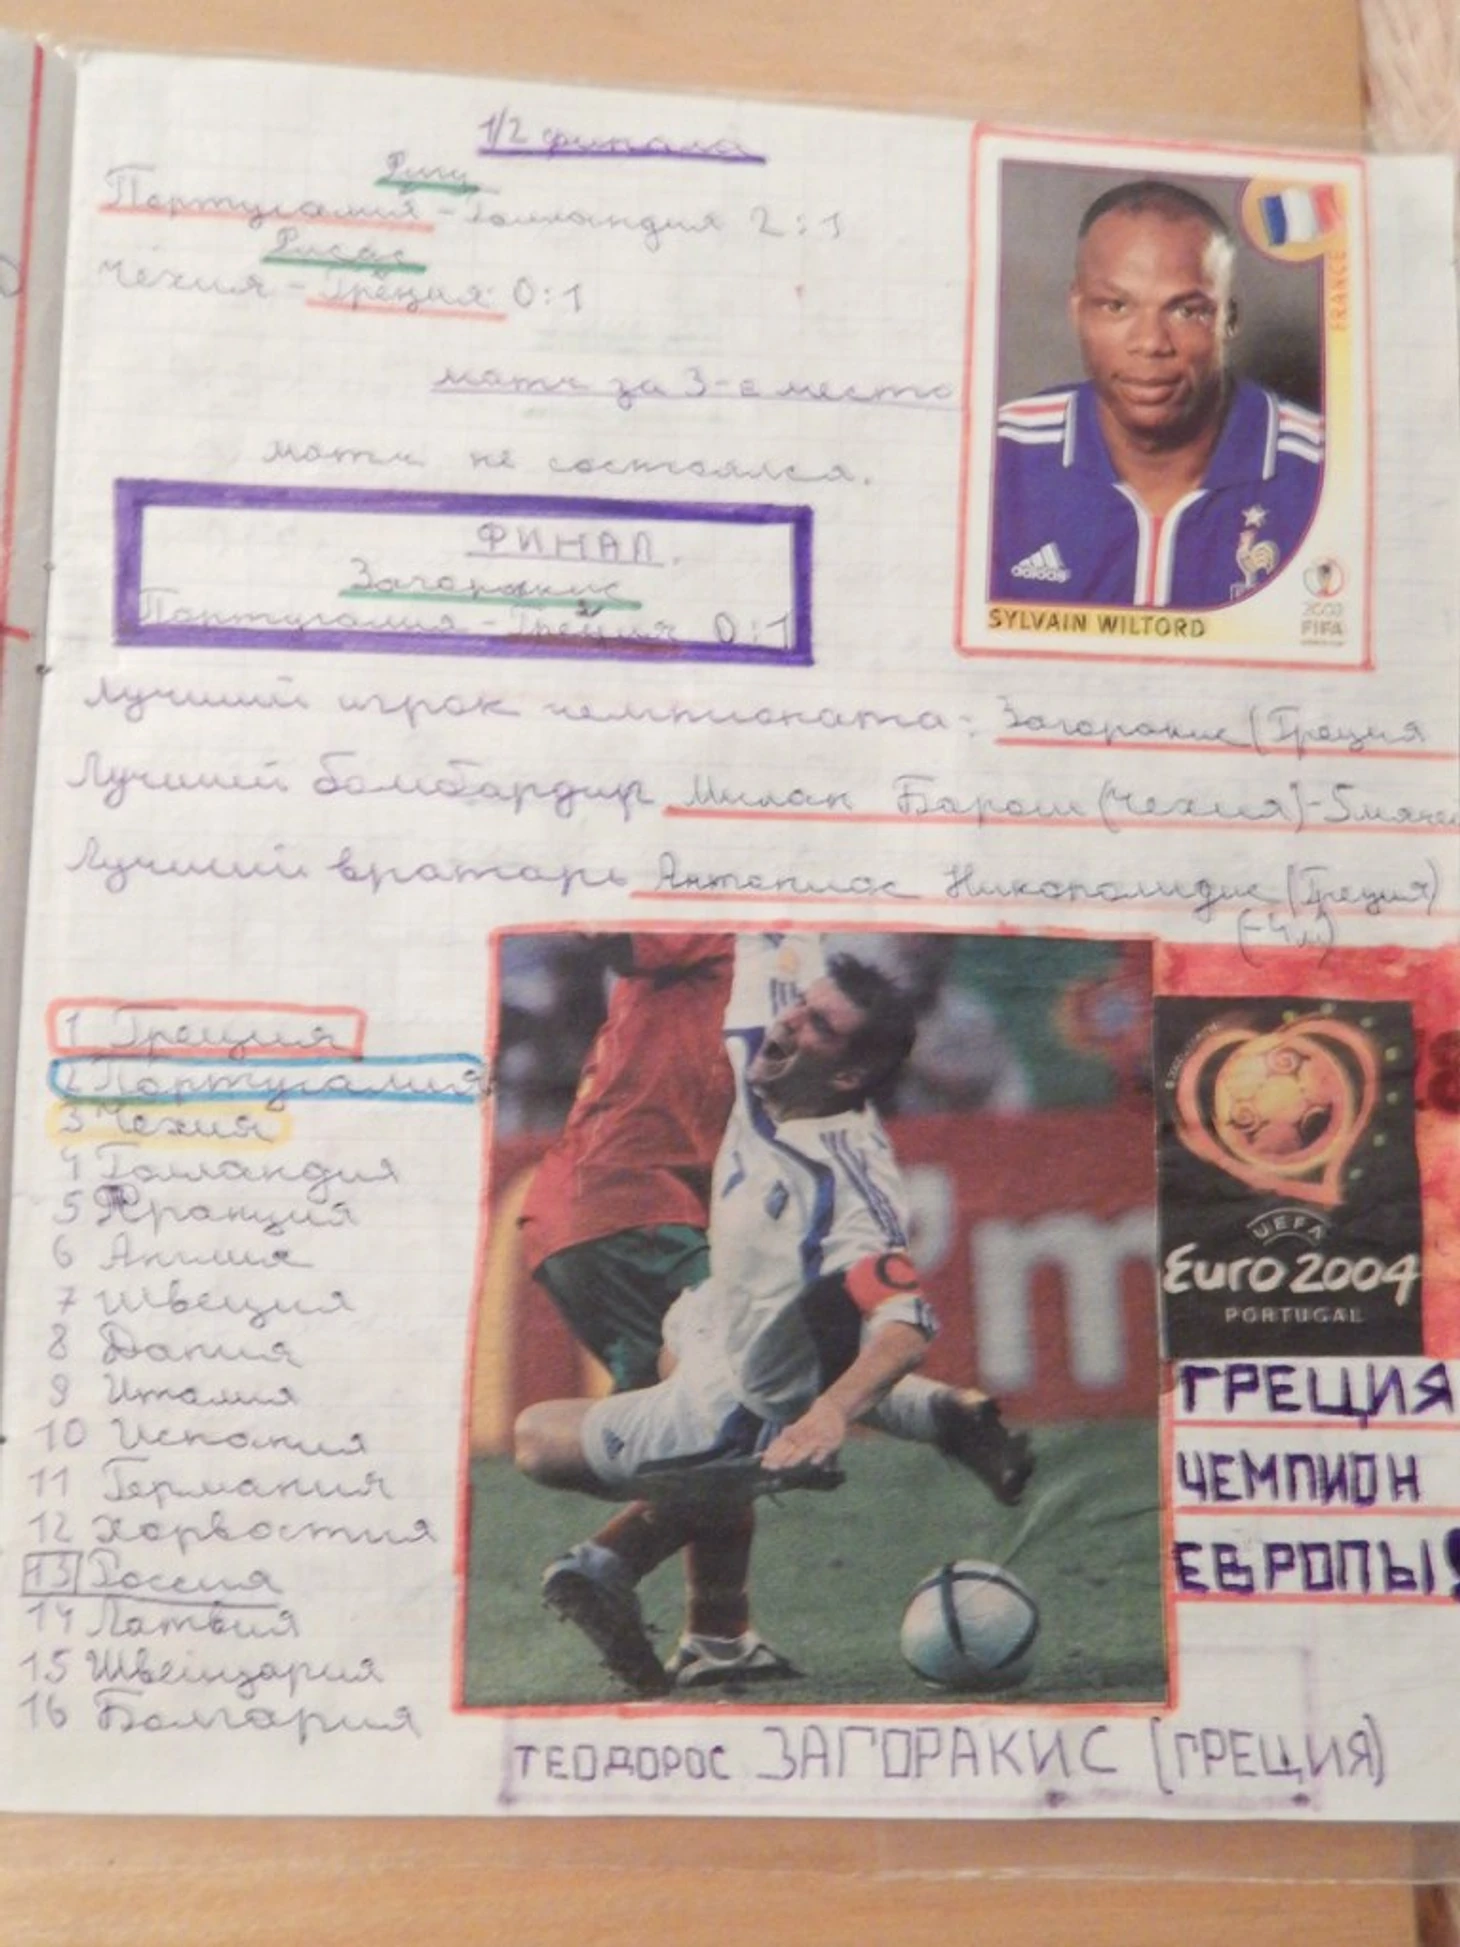 1/2 финала
Фигу
Португалия - Голландия 2:1
Рисас
Чехия - Греция 0:1
матч за 3-е место
матч не состоялся.
ФИНАЛ.
Загоракис
Португалия - Греция 0:1
FRANCE
adidas
SYLVAIN WILTORD
2002
FIFA
Лучший игрок чемпионата: Загоракис (Греция
Лучший бомбардир Милан Барош (Чехия) - 5 мячей
Лучший вратарь Антониос Никополидис (Греция)
(-4 м)
1 Греция
2 Португалия
3 Чехия
4 Голландия
5 Франция
6 Англия
7 Швеция
8 Дания
9 Италия
10 Испания
11 Германия
12 Хорватия
13 Россия
14 Латвия
15 Швейцария
16 Болгария
7
C
pm
UEFA
Euro 2004
PORTUGAL
ГРЕЦИЯ
ЧЕМПИОН
ЕВРОПЫ!
ТЕОДОРОС ЗАГОРАКИС (ГРЕЦИЯ)